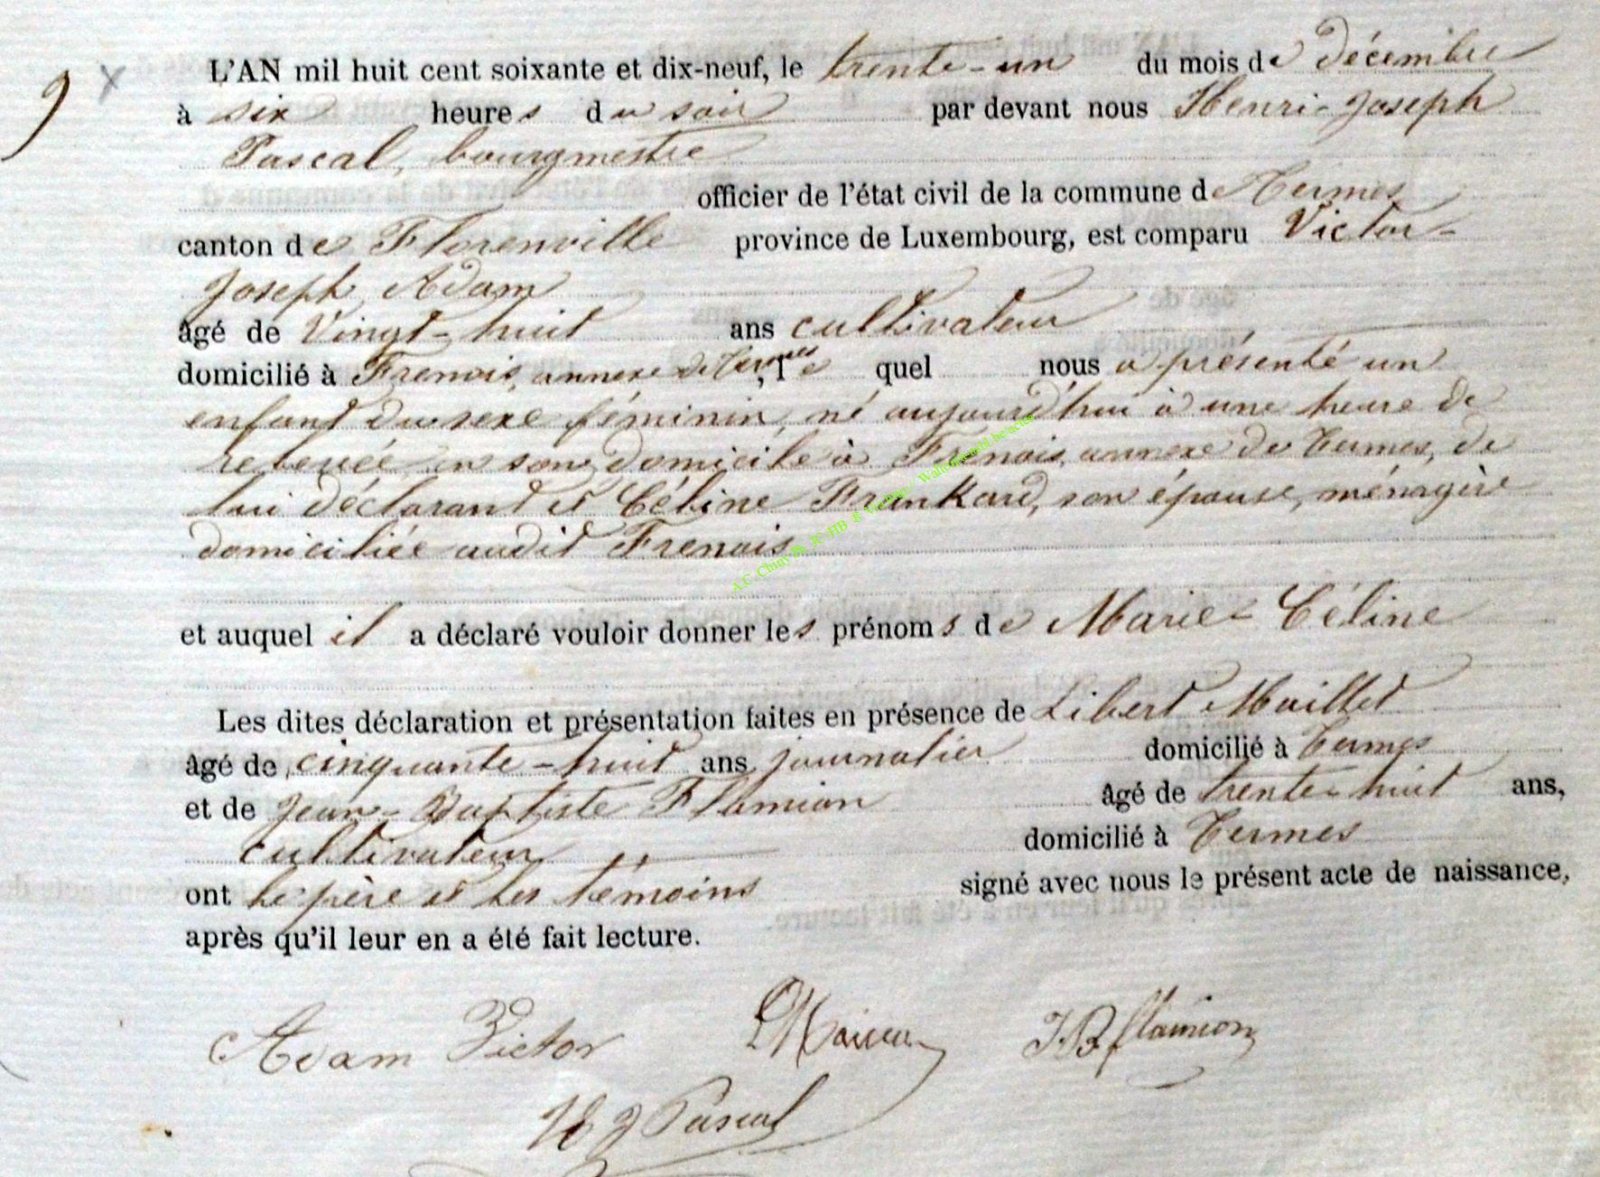 9 x
L'AN mil huit cent soixante et dix-neuf, le trente-un du mois de décembre
à six heures du soir par devant nous Henri-Joseph
Pascal, bourgmestre
officier de l'état civil de la commune de Termes
canton de Florenville province de Luxembourg, est comparu Victor-
Joseph Adam
âgé de Vingt-huit ans cultivateur
domicilié à Frenois, annexe de Termes, le quel nous a présenté un
enfant du sexe féminin, né aujourd'hui à une heure de
relevée en son domicile à Frenois, annexe de Termes, de
lui déclarant et Céline Frankard, son épouse, ménagère
domiciliée audit Frenois
et auquel il a déclaré vouloir donner les prénoms de Marie-Céline
Les dites déclaration et présentation faites en présence de Libert Maillet
âgé de cinquante-huit ans journalier domicilié à Termes
et de Jean-Baptiste Flamion âgé de trente-huit ans,
cultivateur domicilié à Termes
ont le père et les témoins signé avec nous le présent acte de naissance,
après qu'il leur en a été fait lecture.
Adam Victor JB flamion
H J Pascal